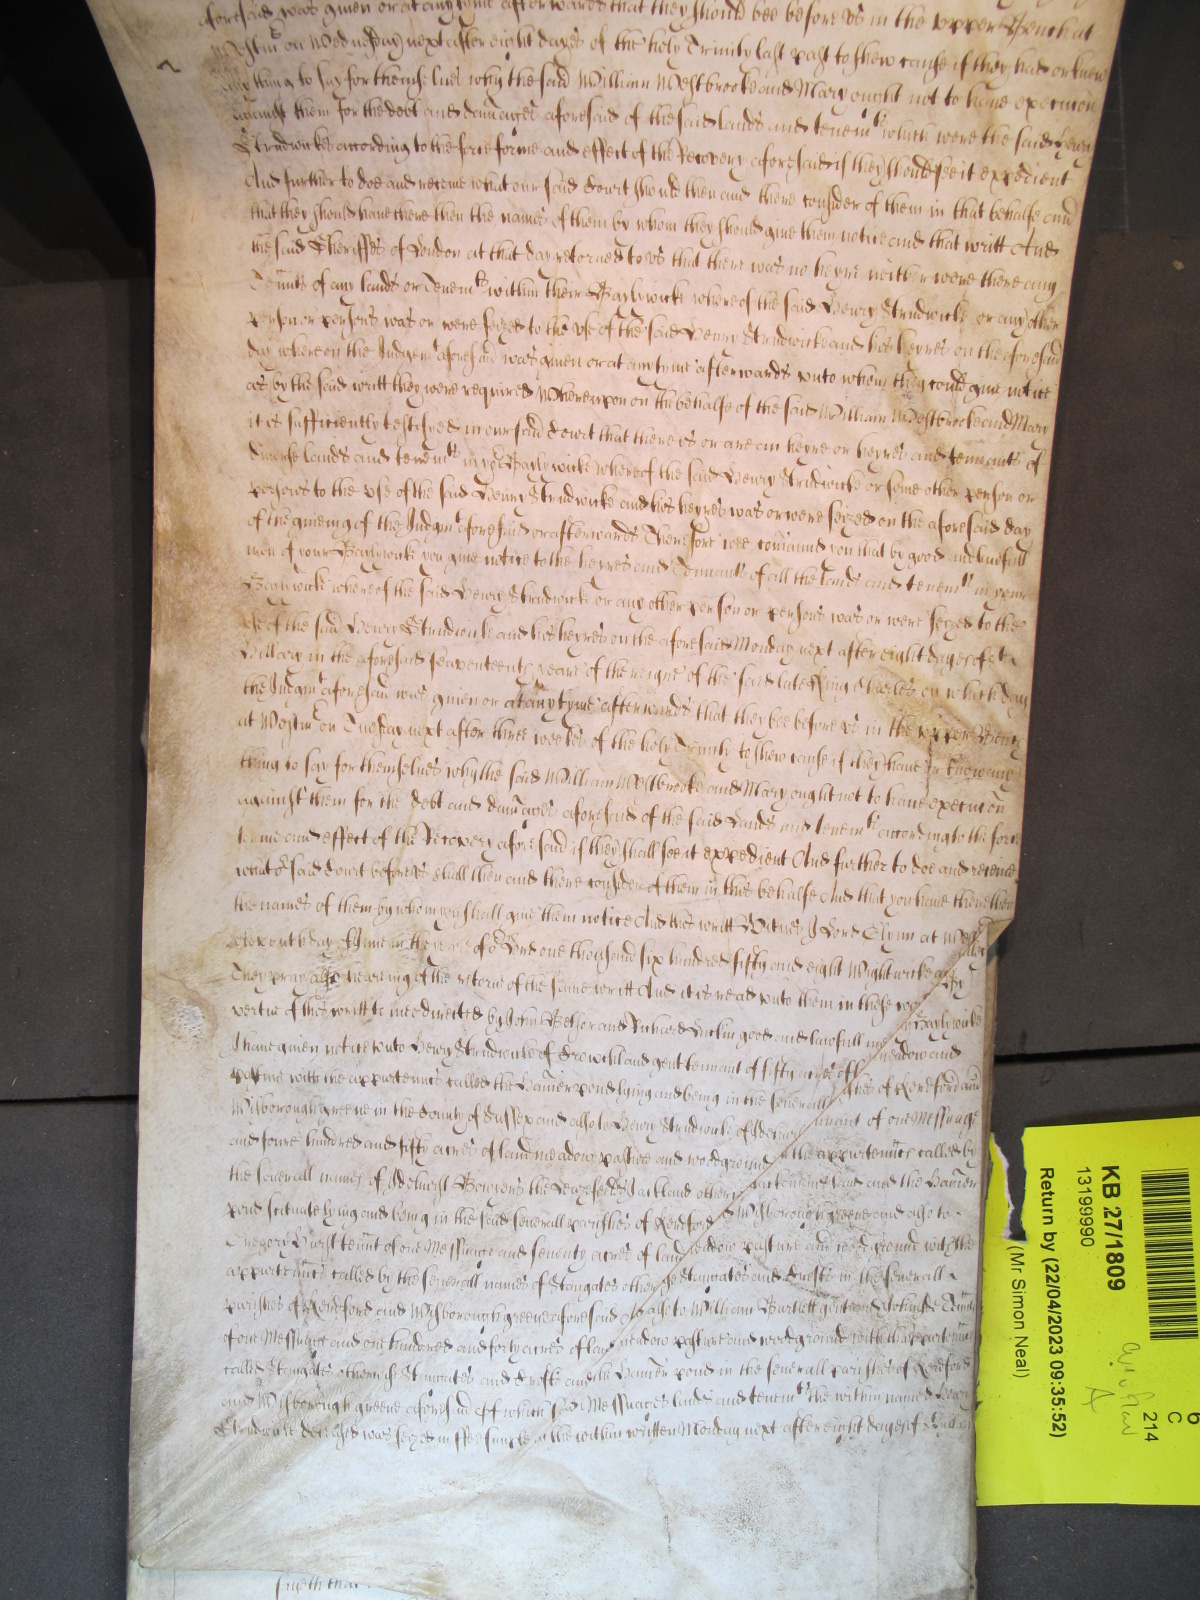 aforesaid was given or at any tyme afterwards that they should bee before us in the upper Bench at
Westm on Wednesday next after eight dayes of the holy Trinity last past to shew cause if they had or knew
any thing to say for themselves why the said William Westbrooke and Mary ought not to have execucion
against them for the debt and damages aforesaid of the said lands and tenemts which were the said Henry
Strudwicks according to the force forme and effect of the Recovery aforesaid if they should see it expedient
And further to doe and receive what our said Court should then and there consider of them in that behalfe and
that they should have there then the names of them by whom they should give them notice and that writt And
the said Sheriffes of London at that day retorned to us that there was no heyre neither were there any
Tennts of any lands or Tenemts within their Baylywicke whereof the said Henry Strudwicke or any other
person or persons was or were seized to the use of the said Henry Strudwicke and his heyres on the aforesaid
day whereon the Judgemt aforesaid was given or at any tyme afterwards unto whom they could give notice
as by the said writt they were required Whereupon on the behalfe of the said William Westbrooke and Mary
it is sufficiently testifyed in our said Court that there is or are an heyre or heyres and tennants of
diverse lands and tenemts in yor Baylywicke whereof the said Henry Strudwicke or some other person or
persons to the use of the said Henry Strudwicke and his heyres was or were seized on the aforesaid day
of the giveing of the Judgmt aforesaid or afterwards Therefore wee comaund you that by good and lawfull
men of your Baylywick you give notice to the heyres and Tennants of all the lands and tenemts in your
Baylywick whereof the said Henry Strudwicke or any other person or persons was or were seized to the
use of the said Henry Strudwicke and his heyres on the aforesaid Monday next after eight dayes of St
Hillary in the aforesaid seaventeenth yeare of the reigne of the said late King Charles on which day
the Judgmt aforesaid was given or at any tyme afterwards that they bee before us in the upper Bench
at Westm on Tuesday next after three weekes of the holy Trinity to shew cause if they have or knowe any
thing to say for themselves why the said William Westbrooke and Mary ought not to have execucion
against them for the debt and damages aforesaid of the said Lands and tenemts according to the force
forme and effect of the Recovery aforesaid if they shall see it expedient And further to doe and receive
what or said Court before us shall then and there consider of them in this behalfe And that you have there then
the names of them by whom you shall give them notice And this writt Witnes J Lord Glynn at
day of June in the yeare of or Lord one thousand six hundred fifty and eight Wightwicke
They pray also heareing of the retorne of the same writt And it is read unto them in these By
vertue of this writt to mee directed by John and Richard good and lawfull Baylywicke
I have given notice unto Henry Strudwicke of Crouchland gent tennant of fifty acres of meadow and
pasture with the appurtennces called the Hamerpond lying and being in the severall of Kerdford and
Wisborough greene in the County of Sussex and also to Henry Strudwicke of Idehurst of one Messuage
and foure hundred and fifty acres of land meadow pasture and woodground the appurtennces called by
the severall names of Idehurst Bowyers the Jackland other and the Hamer
pond scituate lying and being in the said severall parishes of Kerdford Wisborough greene and also to
Gregory Hurst tennt of one Messuage and seventy acres of land meadow pasture and woodground with the
appurtennces called by the severall names of Stangates otherwise Stangates and Crofts in the severall
parishes of Kerdford and Wisborough greene aforesaid also to William Bartlett gent
of one Messuage and one hundred and forty acres of land meadow pasture and woodground with thappurtennces
called Stangates otherwise Stangates and Crofts and the Hamer pond in the severall parishes of Kerdford
and Wisborough greene aforesaid Of which said Messuages lands and tenemts the within named Henry
Strudwicke deceased was seized in ffee simple on the within written Monday next after eight dayes of St
sayeth that
KB 27/1809
13199990
Return by (22/04/2023 09:35:52)
(Mr Simon Neal)
6
C
214